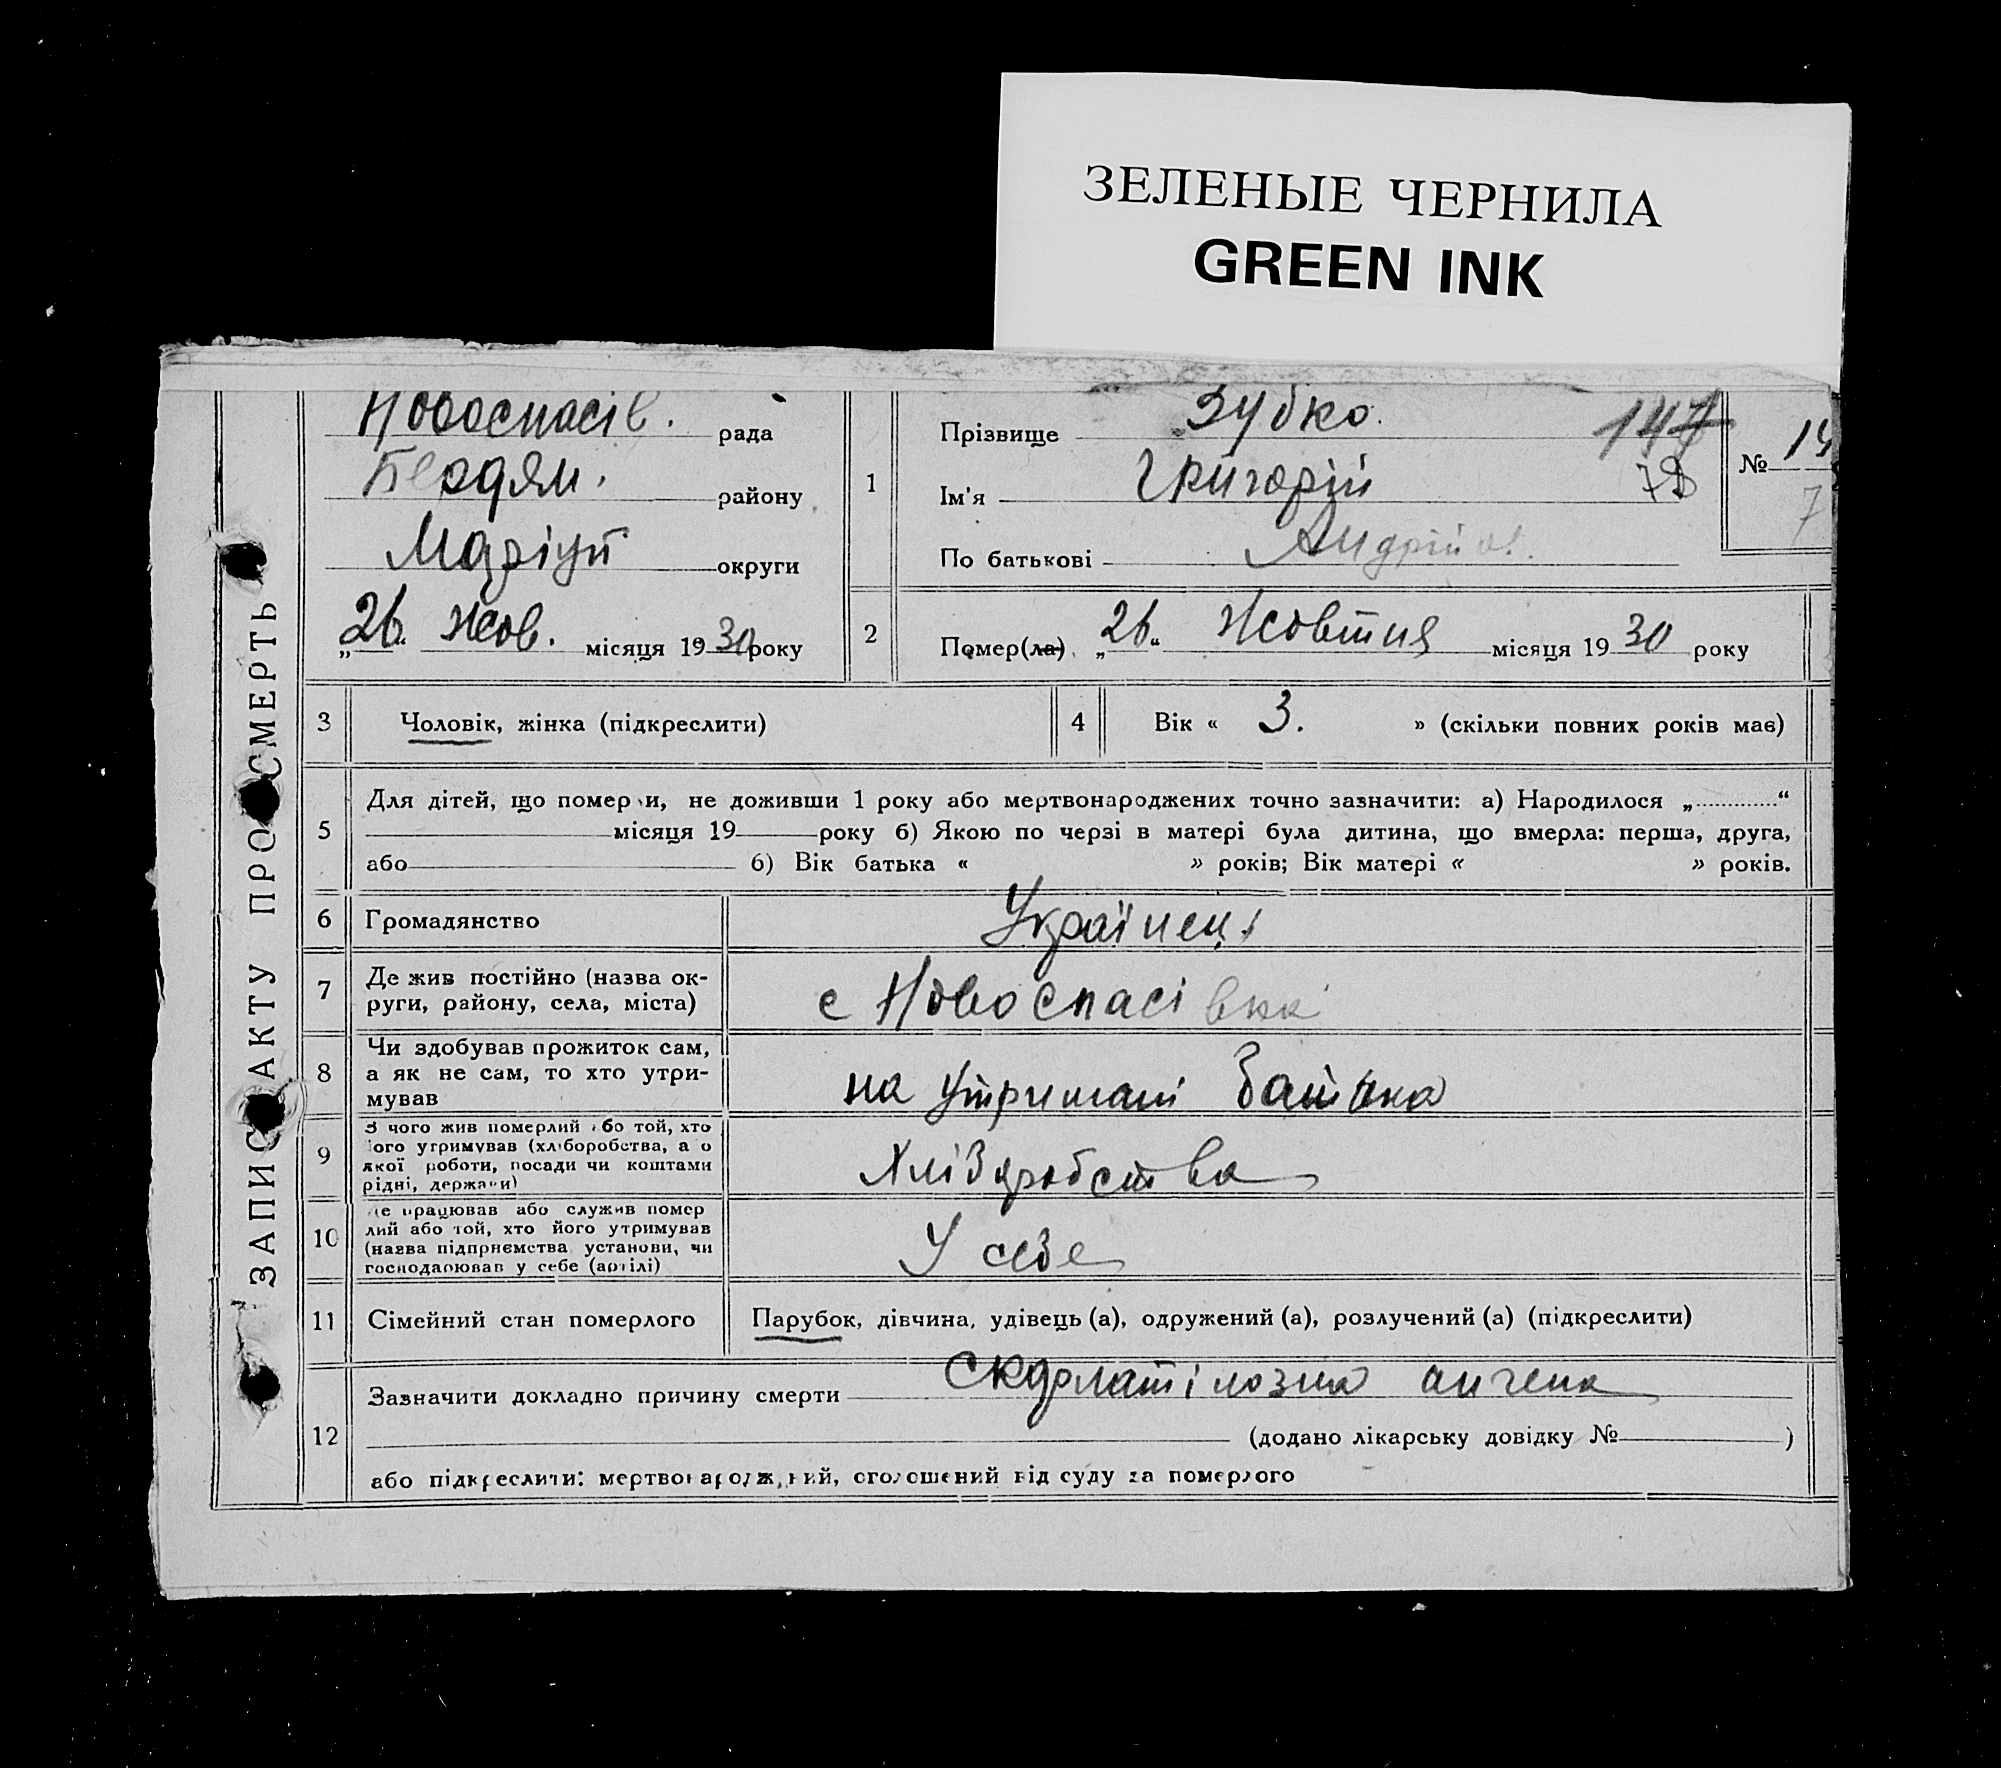 ЗЕЛЕНЫЕ ЧЕРНИЛА
GREEN INK
ЗАПИС АКТУ ПРО СМЕРТЬ
Новоспасів. рада
Бердян. району
Маріуп округи
„26“ жов. місяця 1930 року
1
Прізвище Зубко.
Ім'я Григорій
По батькові Андрійов.
147
№ 14
7
2
Помер(ла) „26“ Жовтня місяця 1930 року
3 Чоловік, жінка (підкреслити)
4 Вік « 3. » (скільки повних років має)
5
Для дітей, що померли, не доживши 1 року або мертвонароджених точно зазначити: а) Народилося „ “
місяця 19 року б) Якою по черзі в матері була дитина, що вмерла: перша, друга,
або б) Вік батька « » років; Вік матері « » років.
6 Громадянство Українець
7 Де жив постійно (назва ок-
руги, району, села, міста)
с Новоспасівка
8 Чи здобував прожиток сам,
а як не сам, то хто утри-
мував
на утримані батька
9 З чого жив померлий або той, хто
його утримував (хліборобства, а о
якої роботи, посади чи коштами
рідні, держави)
Хліборобства
10 Де працював або служив помер
лий або той, хто його утримував
(назва підприємства установи, чи
господарював у себе (артілі)
У себе
11 Сімейний стан померлого Парубок, дівчина, удівець (а), одружений (а), розлучений (а) (підкреслити)
12
Зазначити докладно причину смерти ангена
(додано лікарську довідку № )
або підкреслити: мертвонароджений, оголошений від суду за померлого